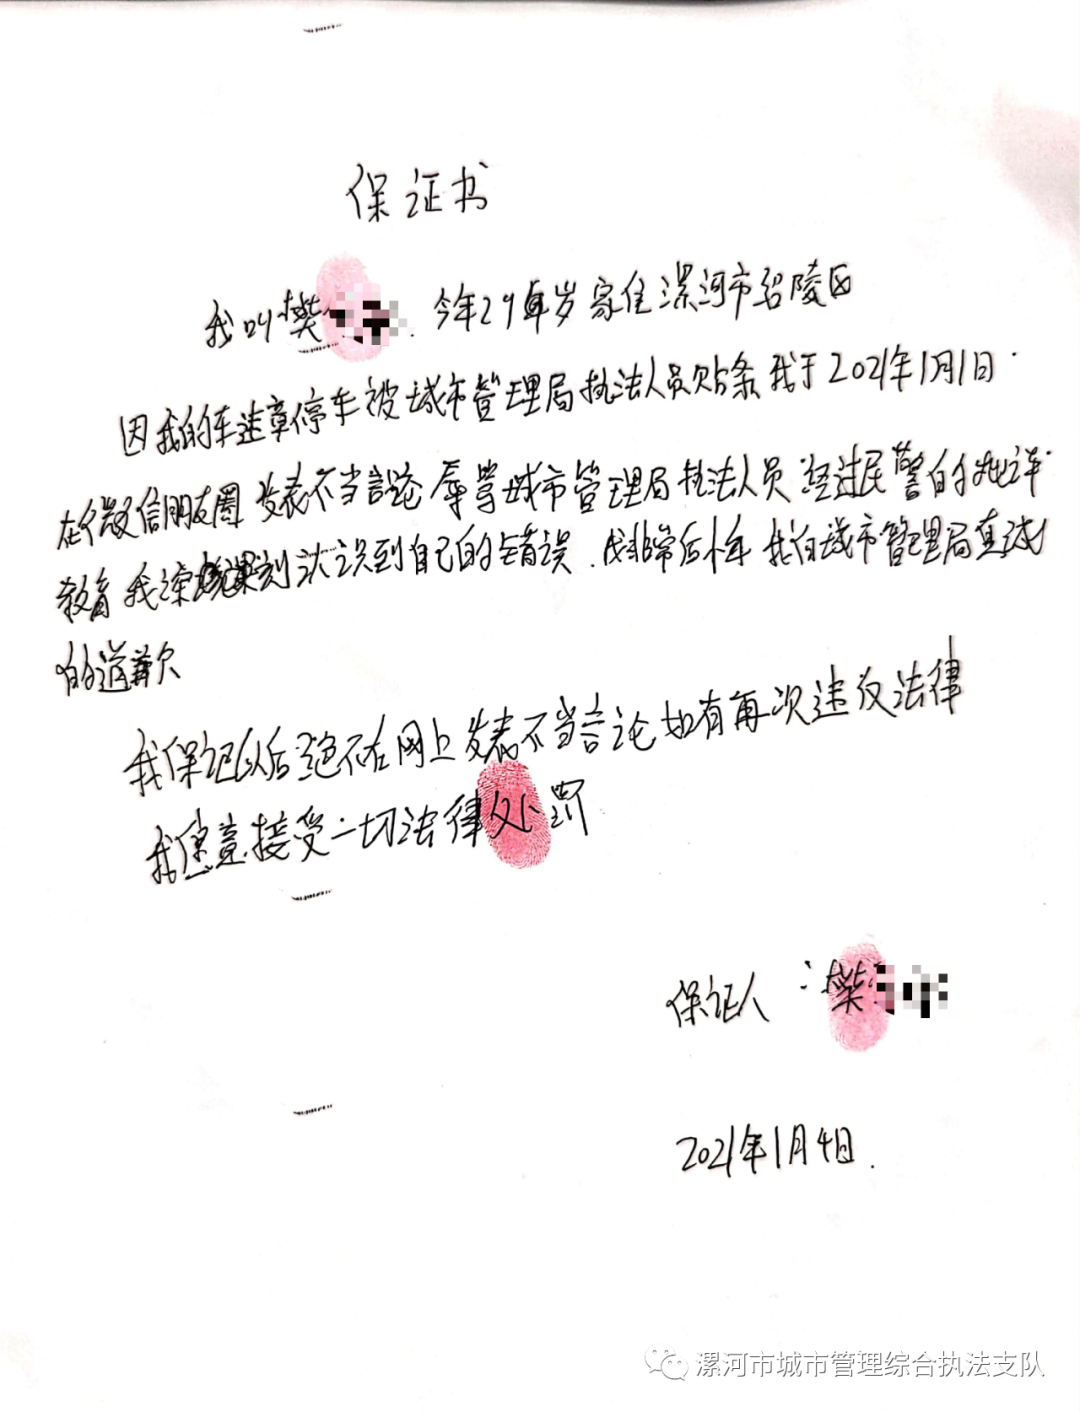 保证书
我叫樊 今年29岁 家住漯河市召陵区
因我的车违章停车被城市管理局执法人员贴条 我于2021年1月1日.
在微信朋友圈 发表不当言论 辱骂城市管理局执法人员 经过民警的批评
教育 我深刻认识到自己的错误.我非常后悔 我向城市管理局真诚
的道歉
我保证以后绝不在网上发表不当言论如有再次违反法律
我愿意接受一切法律处罚
保证人:樊
2021年1月4日.
漯河市城市管理综合执法支队